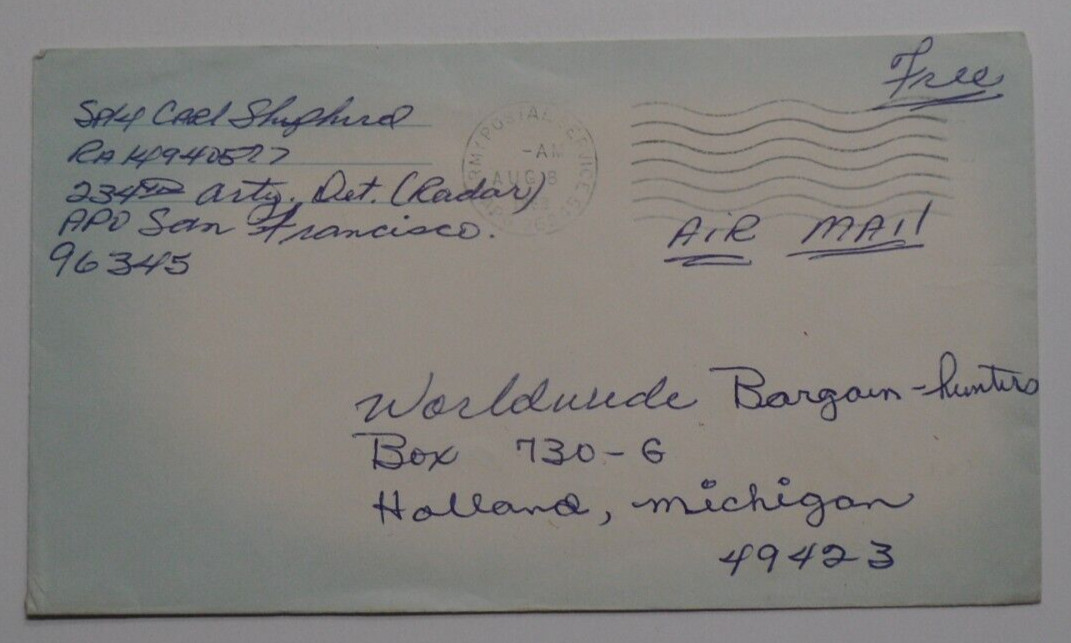 Free
SP/4 Carl Shepherd
RA 14940527
234th Arty. Det. (Radar)
APO San Francisco.
96345
ARMY POSTAL SERVICE
-AM
AUG 8
AiR MAIl
Worldwide Bargain-hunters
Box 730-G
Holland, Michigan
49423